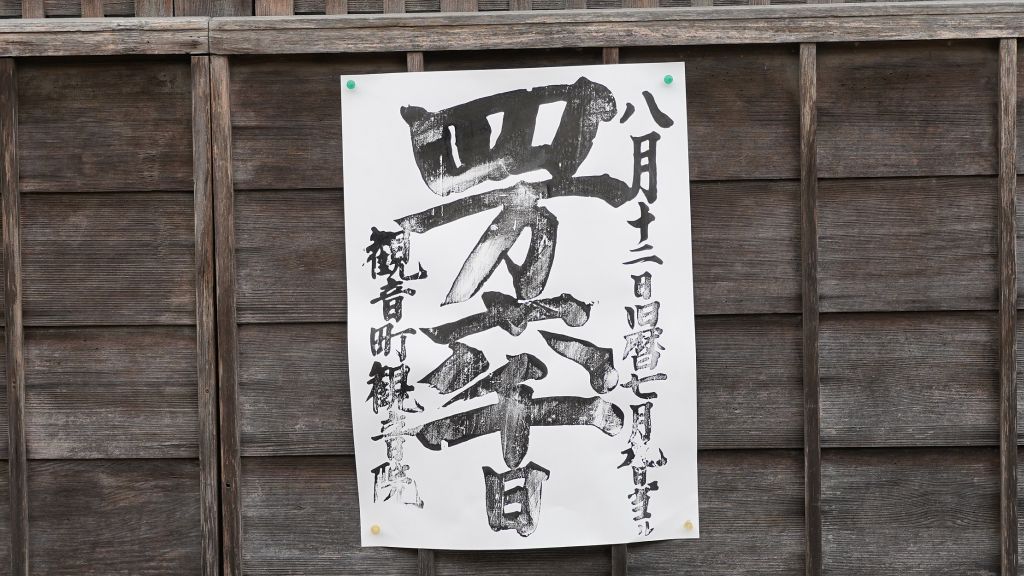 八月十二日旧暦七月九日
四万六千日
観音町観音院